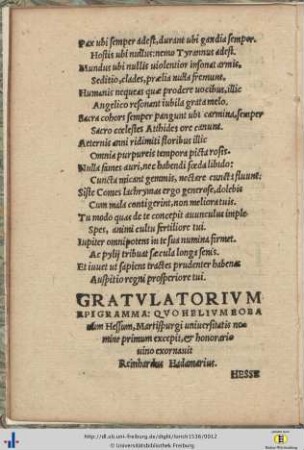 Pax ubi semper adest, durant ubi gaudia semper.
Hostis ubi nullus: nemo Tyrannus adest.
Mundus ubi nullis violentior insonat armis,
Seditio, clades, prælia nulla fremunt.
Humanis nequeas quæ prodere vocibus, illic
Angelico resonant iubila grata melo.
Sacra cohors semper pangunt ubi carmina, semper
Sacro cœlestes Atthides ore canunt.
Aeternis anni ridimiti floribus illic
Omnia purpureis tempora picta rosis.
Nulla fames auri, nec habendi fœda libido:
Cuncta micant gemmis, nectare cuncta fluunt:
Siste Comes lachrymas ergo generose, dolebis
Cum mala contigerint, non meliora tuis.
Tu modo quas de te concepit avunculus imple
Spes, animi cultu fertiliore tui.
Iupiter omnipotens in te sua numina firmet.
Ac pylij tribuat sæcula longa senis.
Et iuvet ut sapiens tractes prudenter habenas
Auspitio regni prosperiore tui.
GRATVLATORIVM
EPIGRAMMA: QVO HELIVM EOBA
num Hessum, Martispurgi universitatis no-
mine primum excepit, & honorario
vino exornavit
Reinhardus Hadamarius.
HESSE
http://dl.ub.uni-freiburg.de/diglit/lorich1538/0012
© Universitätsbibliothek Freiburg